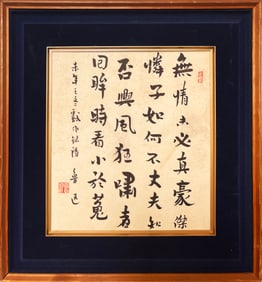 無情未必真豪傑
憐子如何不丈夫知
否興風狂嘯者
回眸時看小於菟
未年之冬戲作 魯迅